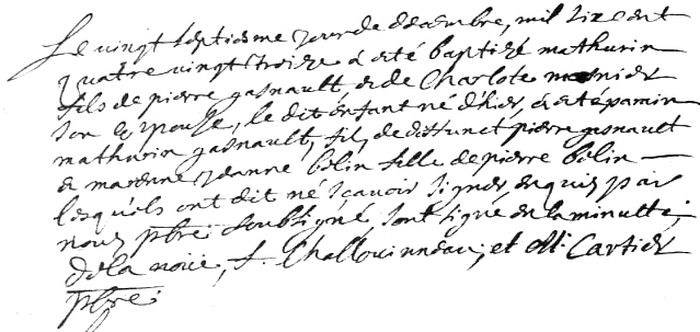 Le vingt septiesme jour de decembre, mil six cent
quatre vingt treize a esté baptizé mathurin
fils de pierre gasnault, et de Charlote mesnier
son Espouse, le dit enfant né d'hier, a esté parain
mathurin gasnault, fils de deffunct pierre gasnault
et marenne jeanne belin fille de pierre belin —
lesquels ont dit ne sçavoir signer, enquis par
nous pbre soubsigné, sont signé en la minutte;
De la noüe, f. Challouinneau; et M. Cartier
pbre.